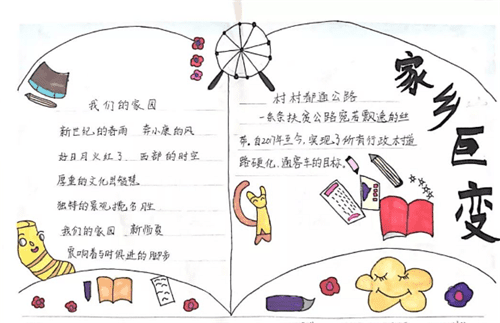 家乡巨变
我们的家园
新世纪的春雨 奔小康的风
好日月火红了 西部的时空
厚重的文化
独特的景观 名胜
我们的家园 新
震响着与时俱进的脚步
村村都通公路
一条条扶贫公路宛若飘逸的丝
带。自2017年至今,实现了所有行政村道
路硬化、通客车的目标。